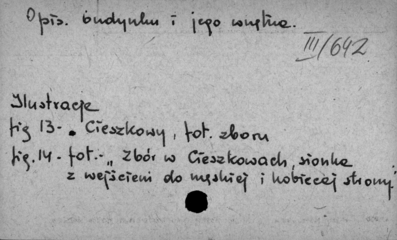 Opis. budynku i jego wnętrza.
III/642
Ilustracje
fig 13- „ Cieszkowy, fot. zboru
fig. 14 - fot.- „ Zbór w Cieszkowach, sionka
z wejściem do męskiej i kobiecej strony"